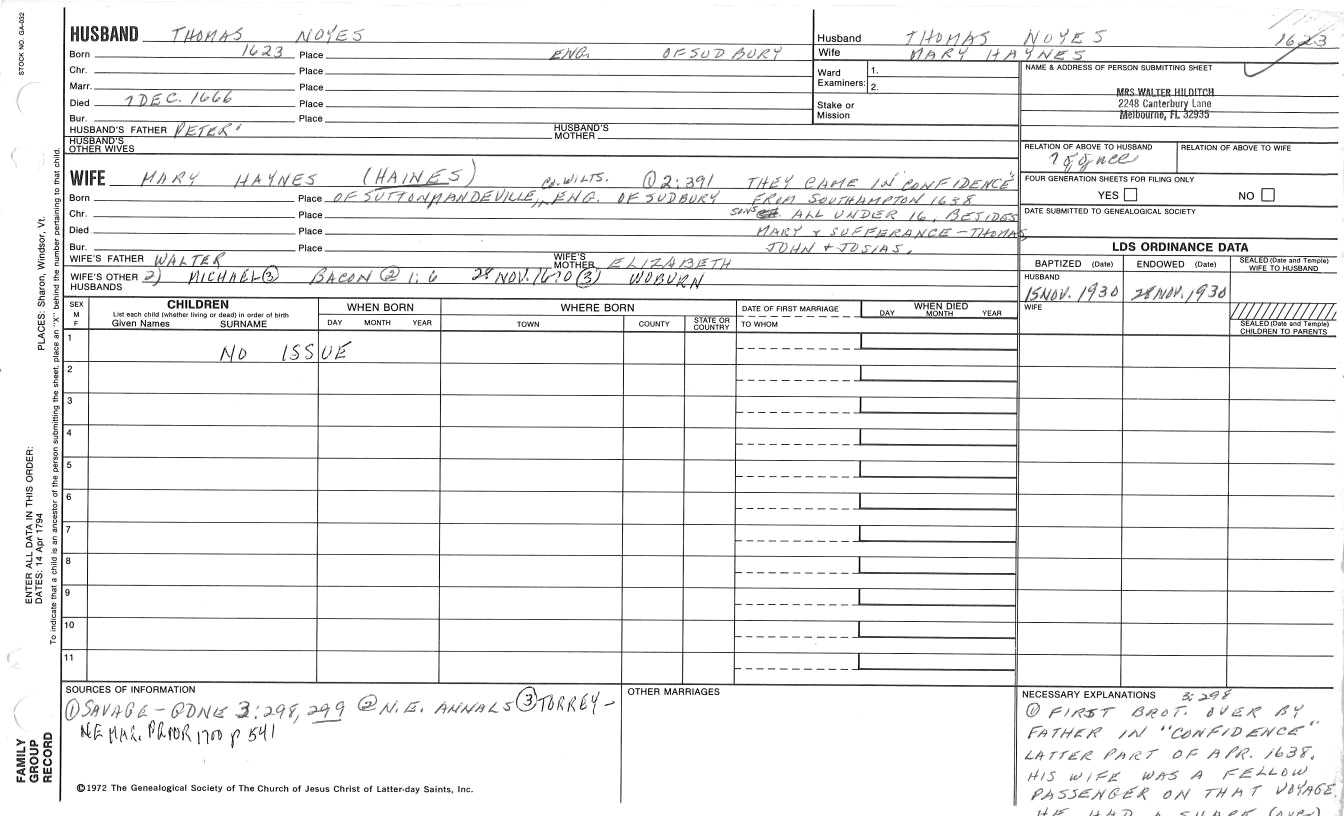 STOCK NO. GA-032
HUSBAND THOMAS NOYES
Born 1623 Place ENG. OF SUDBURY
Chr. Place
Marr. Place
Died 7 DEC. 1666 Place
Bur. Place
HUSBAND'S FATHER PETER
HUSBAND'S MOTHER
HUSBAND'S OTHER WIVES
Husband THOMAS NOYES 1623
Wife MARY HAYNES
Ward Examiners: 1.
2.
Stake or Mission
NAME & ADDRESS OF PERSON SUBMITTING SHEET
MRS WALTER HILDITCH
2248 Canterbury Lane
Melbourne, FL 32935
RELATION OF ABOVE TO HUSBAND
7 g gnce
RELATION OF ABOVE TO WIFE
FOUR GENERATION SHEETS FOR FILING ONLY
YES NO
DATE SUBMITTED TO GENEALOGICAL SOCIETY
WIFE MARY HAYNES (HAINES) CO. WILTS. ① 2:391 THEY CAME IN "CONFIDENCE"
Born Place OF SUTTONMANDEVILLE, ENG. OF SUDBURY FROM SOUTHAMPTON 1638
Chr. Place SONS ALL UNDER 16, BESIDES
Died Place MARY & SUFFERANCE - THOMAS,
Bur. Place JOHN & JOSIAS.
WIFE'S FATHER WALTER
WIFE'S MOTHER ELIZABETH
WIFE'S OTHER HUSBANDS 2) MICHAEL ③ BACON ② 1:6 28 NOV. 1670 ③ WOBURN
LDS ORDINANCE DATA
BAPTIZED (Date) ENDOWED (Date) SEALED (Date and Temple) WIFE TO HUSBAND
HUSBAND
15 NOV. 1930 28 NOV. 1930
WIFE
SEALED (Date and Temple) CHILDREN TO PARENTS
SEX M F
CHILDREN
List each child (whether living or dead) in order of birth
Given Names SURNAME
WHEN BORN
DAY MONTH YEAR
WHERE BORN
TOWN COUNTY STATE OR COUNTRY
DATE OF FIRST MARRIAGE
TO WHOM
WHEN DIED
DAY MONTH YEAR
1 NO ISSUE
2
3
4
5
6
7
8
9
10
11
SOURCES OF INFORMATION
① SAVAGE - GDNE 3:298, 299 ② N.E. ANNALS ③ TORREY -
NE MAR. PRIOR 1700 p 541
OTHER MARRIAGES
NECESSARY EXPLANATIONS 3:298
① FIRST BROT. OVER BY
FATHER IN "CONFIDENCE"
LATTER PART OF APR. 1638.
HIS WIFE WAS A FELLOW
PASSENGER ON THAT VOYAGE.
HE HAD A SHARE (OVER)
©1972 The Genealogical Society of The Church of Jesus Christ of Latter-day Saints, Inc.
PLACES: Sharon, Windsor, Vt.
To indicate that a child is an ancestor of the person submitting the sheet, place an "X" behind the number pertaining to that child.
ENTER ALL DATA IN THIS ORDER:
DATES: 14 Apr 1794
FAMILY GROUP RECORD